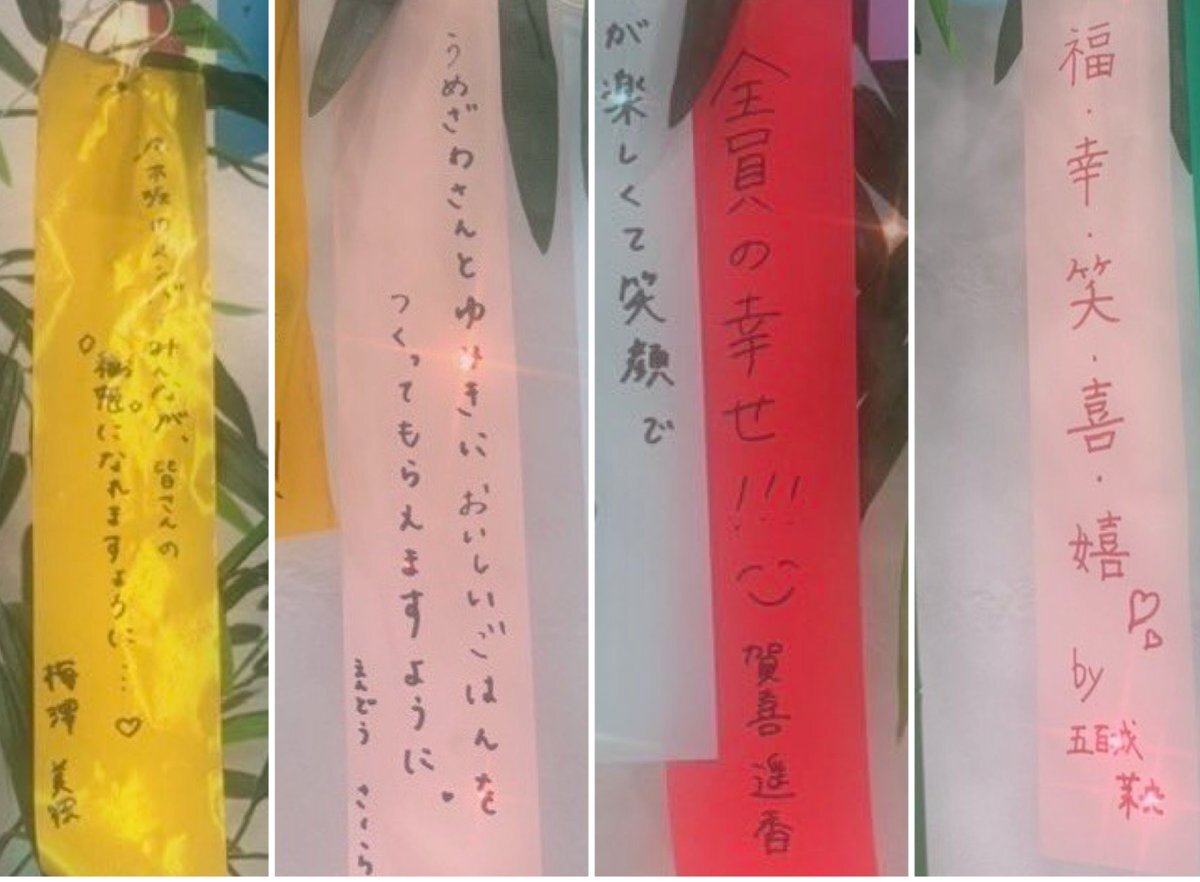 乃木坂のメンバーみんなが、皆さんの
織姫になれますように…♡
梅澤 美波
うめざわさんとゆうきに、おいしいごはんを
つくってもらえますように
えんどう さくら
が楽しくて笑顔で
全員の幸せ!!!
賀喜 遥香
福・幸・笑・喜・嬉
by
五百城
茉央